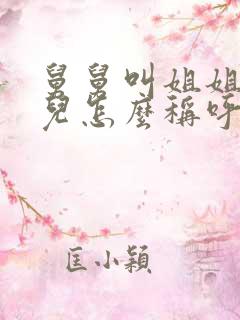 舅舅叫姐姐
兒怎麼稱呼
匡小穎